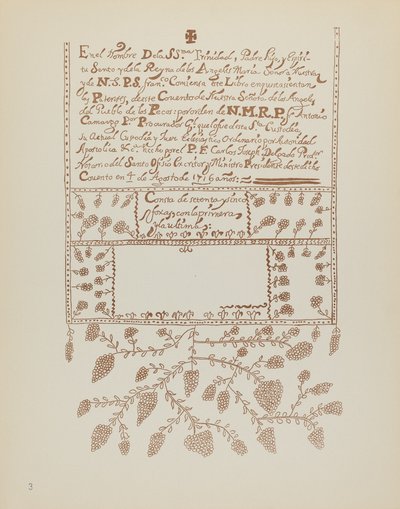 En el Nombre De la SS.ma Trinidad, Padre, Hijo, y Espiri-
tu Santo y de la Reyna de los Angeles Maria Señora Nuestra
y de N. S. P. S. Fran.co Comiensa este Libro en que se asientan
las Patentes, de este Convento de Nuestra Señora de los Angeles
del Pueblo de los Pecos: por orden de N. M. R. P. Fr Antonio
Camargo Por Procurador
su Actual Custodio y Juez Eclesiastico Ordinario por Autoridad
Apostolica &.a Hecho por el P. F. Carlos Joseph Delgado
Notario del Santo Oficio y Ministro Presidente de este dicho
Convento en 4 de Agosto de 1716 años:
Consta de setenta y sinco
fojas con la primera
y la ultima:
3